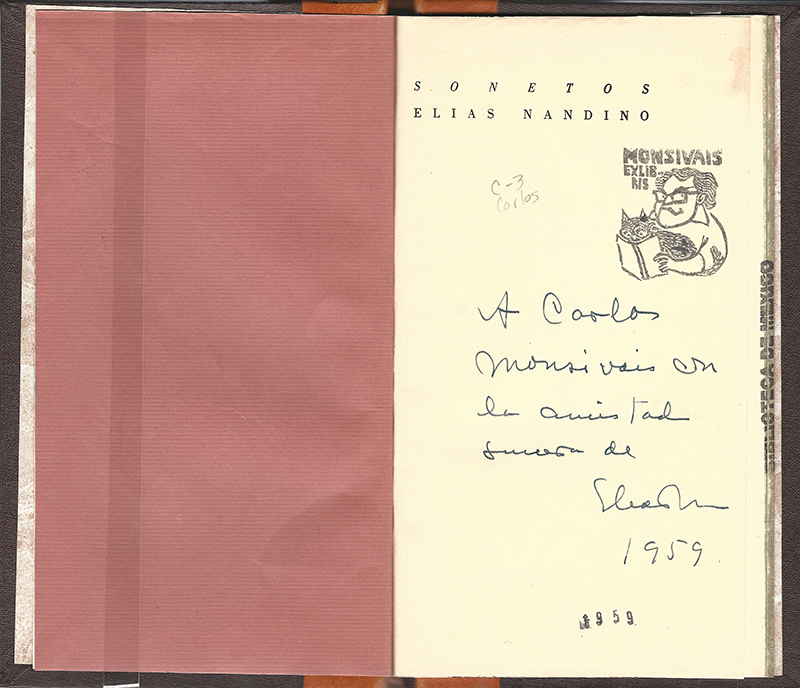 SONETOS
ELIAS NANDINO
MONSIVAIS
EXLIB
RIS
C-3
Carlos
A Carlos
Monsivais con
la amistad
sincera de
Elias N
1959.
1959
BIBLIOTECA DE MEXICO